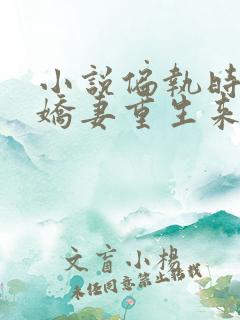 小説偏執時
嬌妻重生來
文盲小楊
未经同意禁止转载